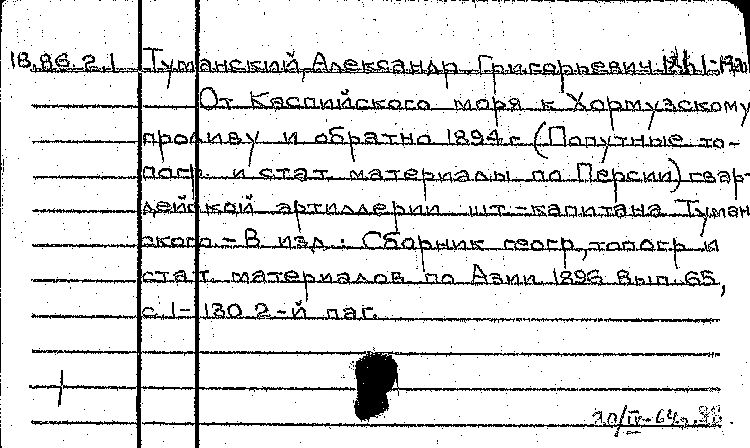 18.86.2.1 Туманский, Александр Григорьевич
От Каспийского моря к Хормузскому
проливу и обратно 1894 г. (Попутные то-
погр. и стат. материалы по Персии) гвар-
дейской артиллерии шт.-капитана Туман
ского. - В изд.: Сборник геогр., топогр и
стат. материалов по Азии 1896 вып. 65,
с. 1-130 2-й паг.
20/IV-64г.